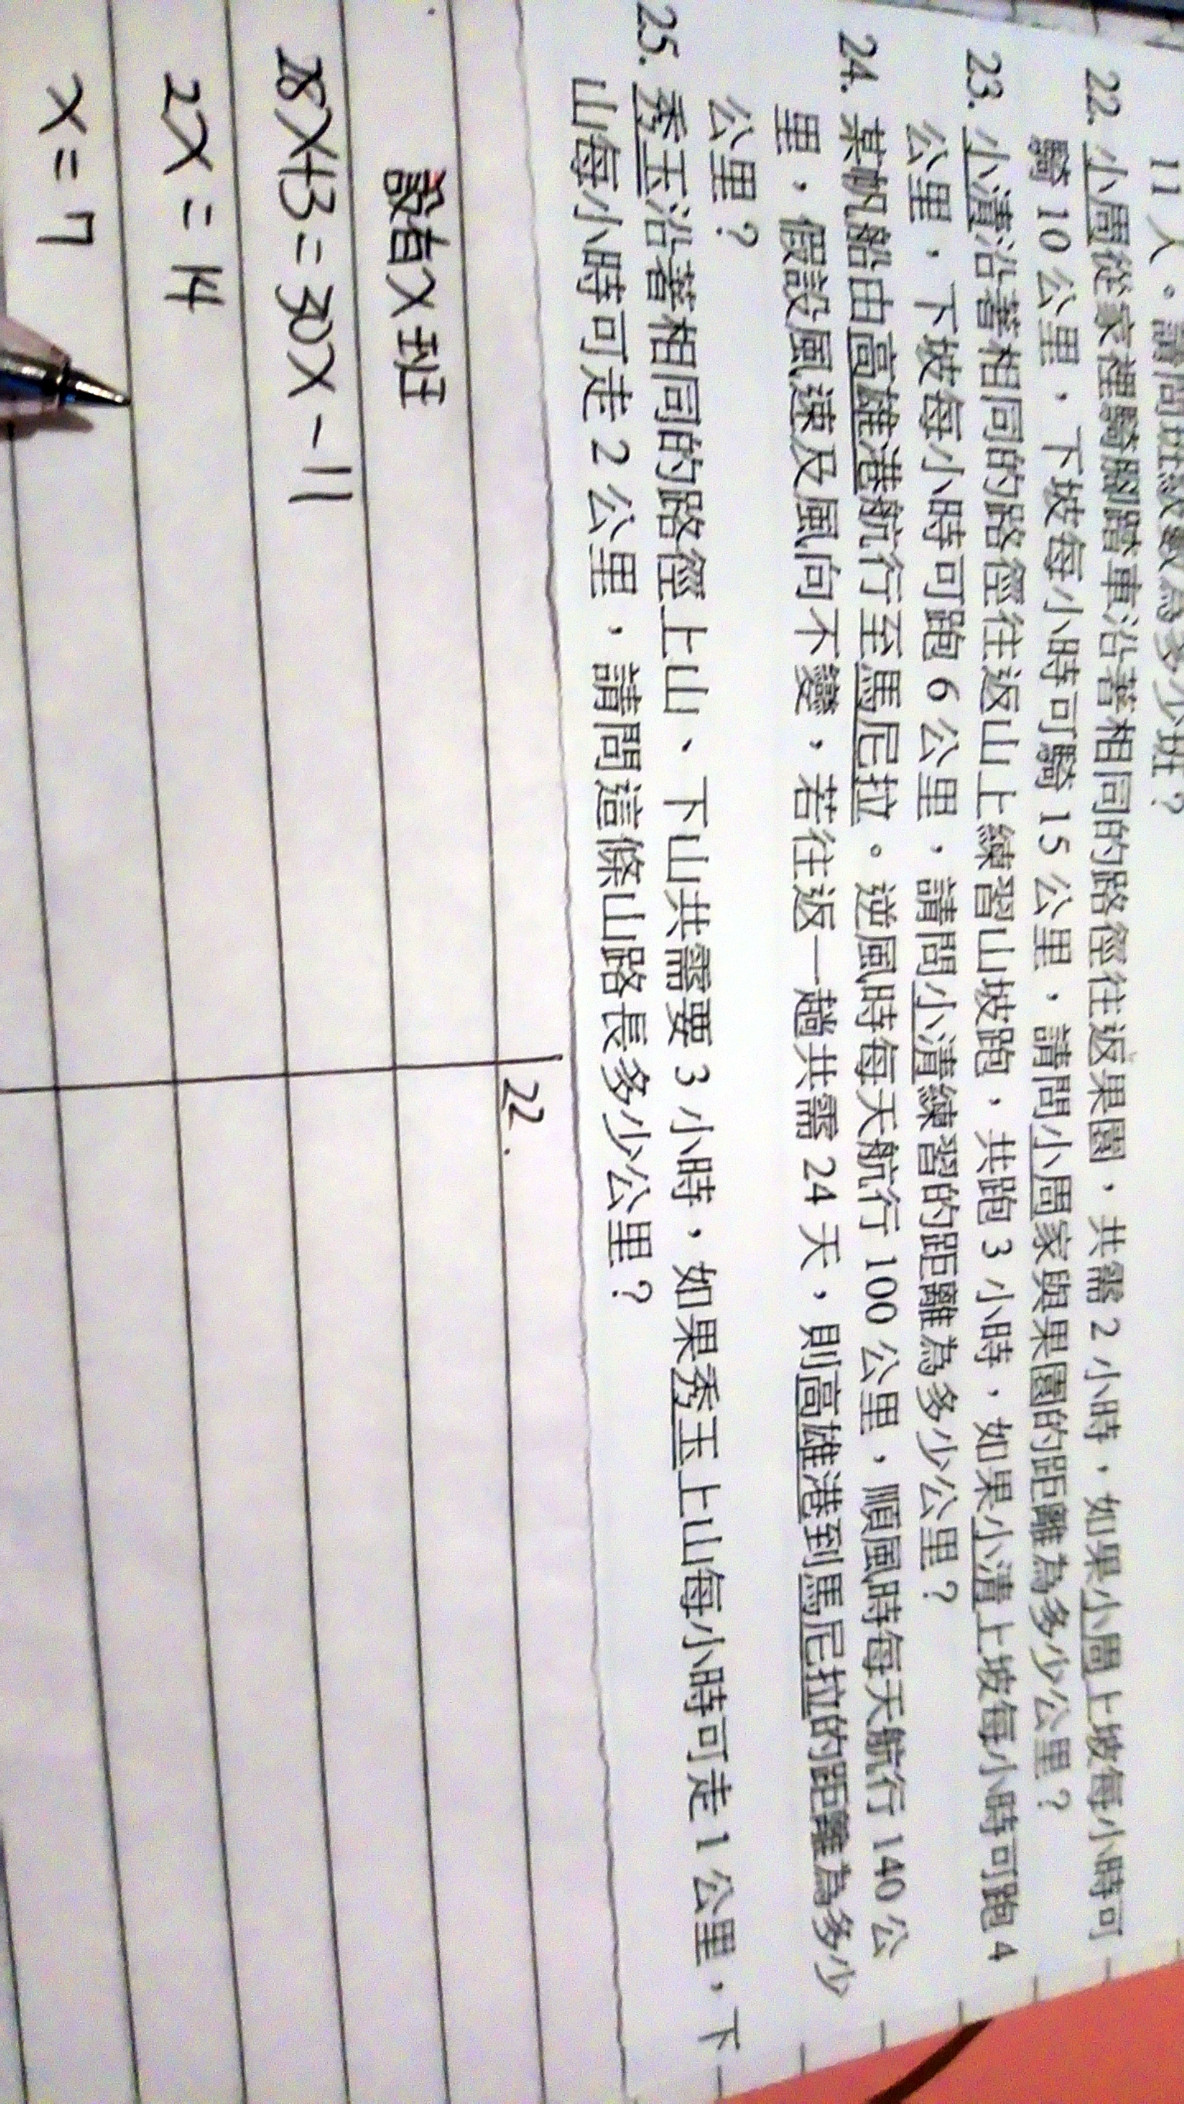 11人。請問班級數為多少班？
22. 小周從家裡騎腳踏車沿著相同的路徑往返果園，共需2小時，如果小周上坡每小時可
騎10公里，下坡每小時可騎15公里，請問小周家與果園的距離為多少公里？
23. 小清沿著相同的路徑往返山上練習山坡跑，共跑3小時，如果小清上坡每小時可跑4
公里，下坡每小時可跑6公里，請問小清練習的距離為多少公里？
24. 某帆船由高雄港航行至馬尼拉。逆風時每天航行100公里，順風時每天航行140公
里，假設風速及風向不變，若往返一趟共需24天，則高雄港到馬尼拉的距離為多少
公里？
25. 秀玉沿著相同的路徑上山、下山共需要3小時，如果秀玉上山每小時可走1公里，下
山每小時可走2公里，請問這條山路長多少公里？
22.
設有X班
28X+3=30X-11
2X=14
X=7